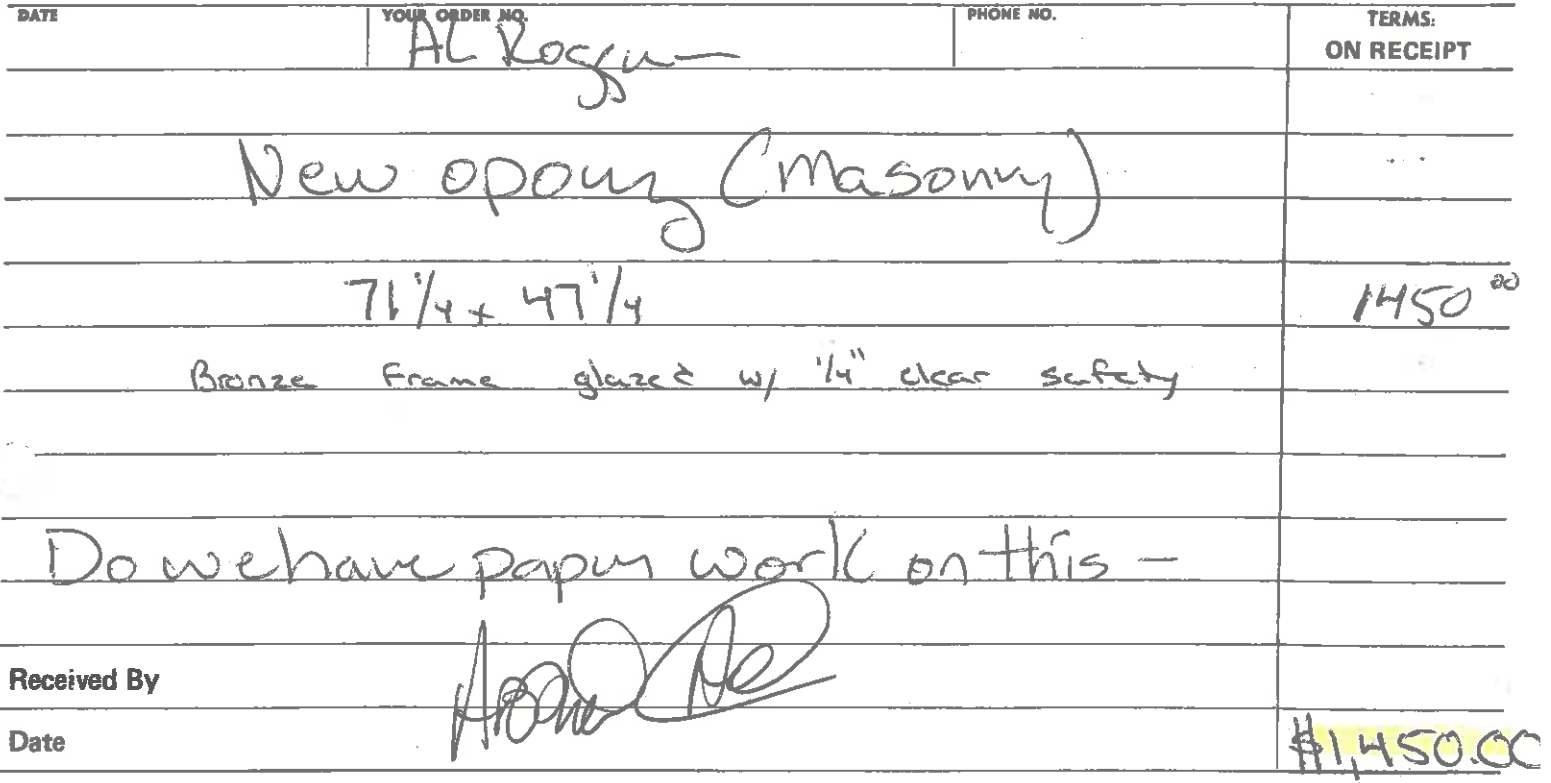 DATE YOUR ORDER NO. PHONE NO. TERMS:
ON RECEIPT
AL
New (Masonry)
71 1/4 x 47 1/4 1450 00
Bronze Frame glazed w/ 1/4" clear safety
Do we have paper work on this -
Received By
Date $1,450.00